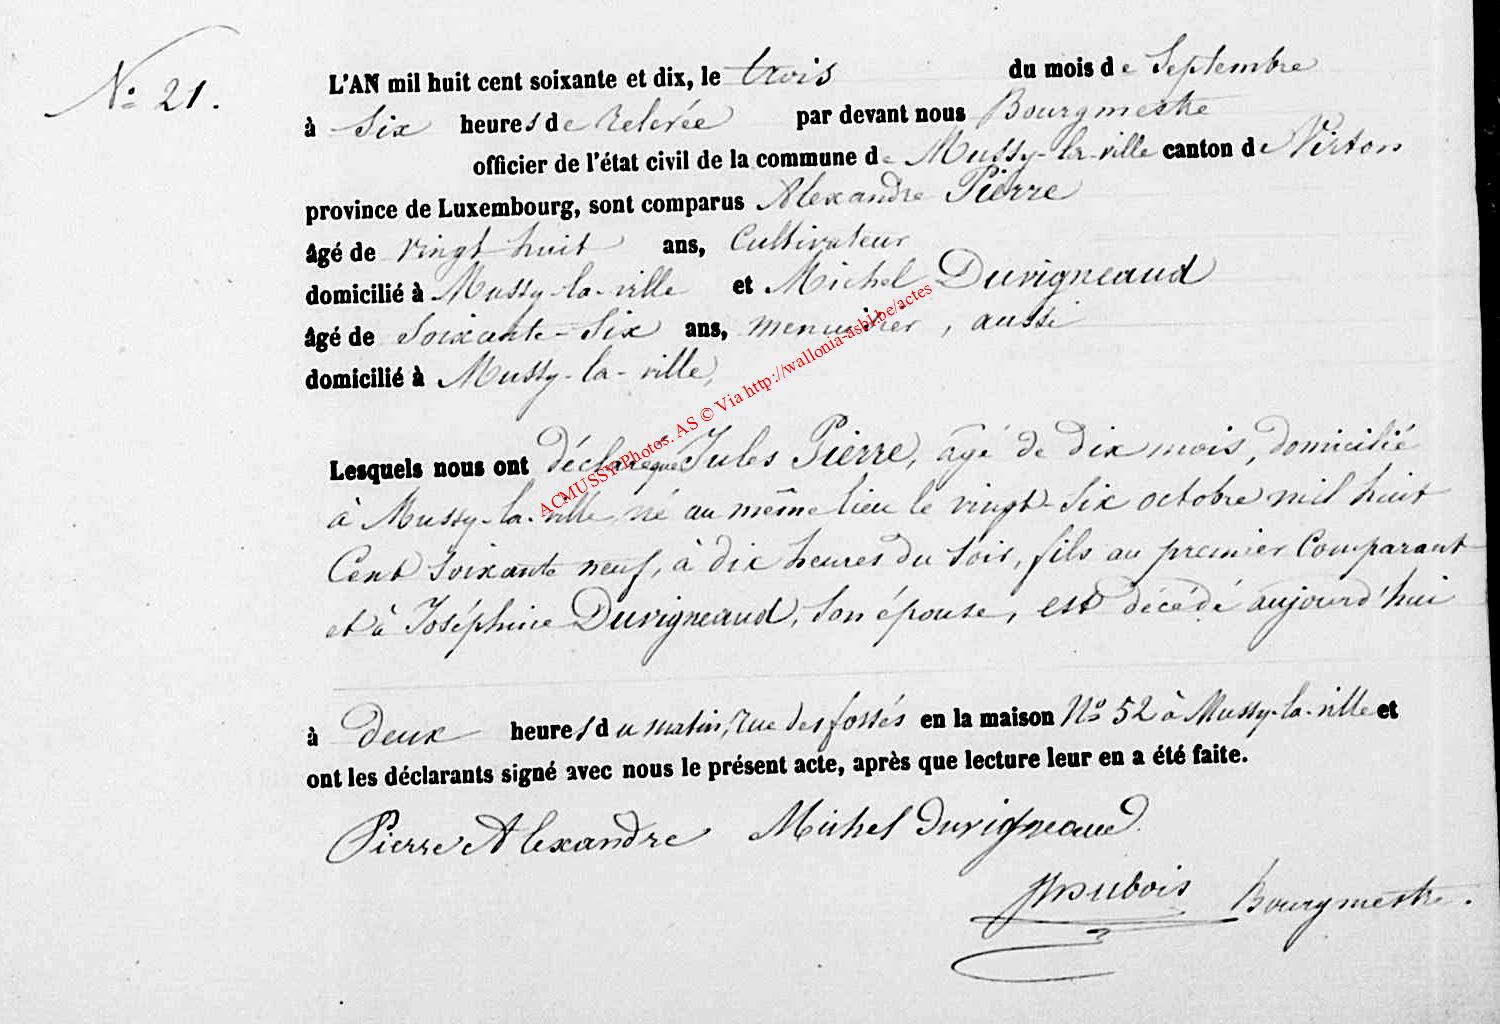 No 21.
L'AN mil huit cent soixante et dix, le trois du mois de Septembre
à Six heures de relevée par devant nous Bourgmestre
officier de l'état civil de la commune de Mussy-la-ville canton de Virton
province de Luxembourg, sont comparus Alexandre Pierre
âgé de vingt huit ans, Cultivateur
domicilié à Mussy-la-ville et Michel Duvigneaud
âgé de Soixante-Six ans, menuisier, aussi
domicilié à Mussy-la-ville,
Lesquels nous ont déclaré que Jules Pierre, âgé de dix mois, domicilié
à Mussy-la-ville, né au même lieu le vingt-six octobre mil huit
Cent soixante neuf, à dix heures du soir, fils au premier Comparant
et à Joséphine Duvigneaud, son épouse, est décédé aujourd'hui
à deux heures du matin, rue des fossés en la maison No 52 à Mussy-la-ville et
ont les déclarants signé avec nous le présent acte, après que lecture leur en a été faite.
Pierre Alexandre Michel Duvigneaud
Dubois Bourgmestre.
ACMUSSY-Photos. AS © Via http://wallonia-asbl.be/actes